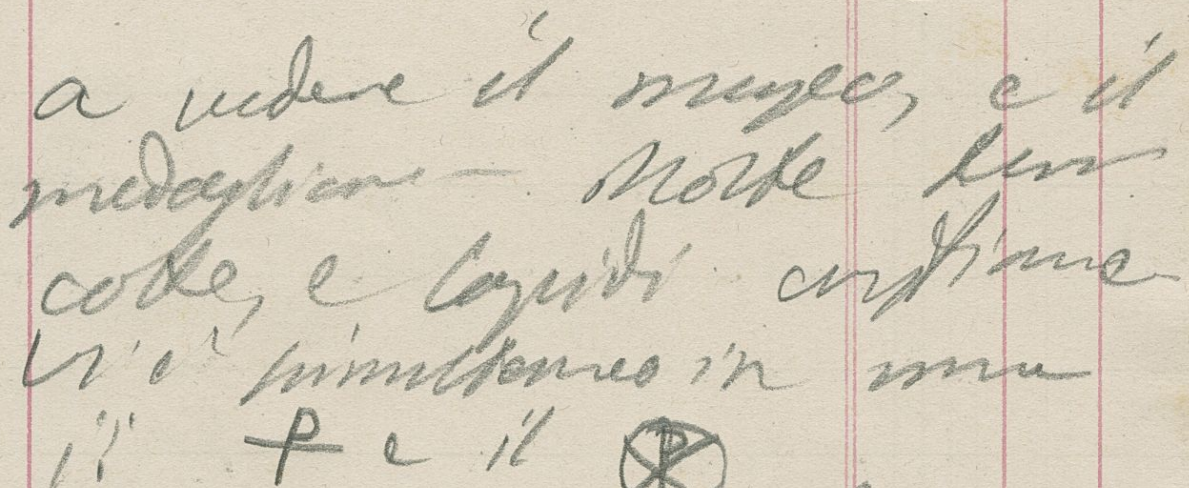 a vedere il museo, e il
medagliere – Molte terre
cotte, e lapidi cristiane
Vi è simultaneo in una
il ⳨ e il ☧